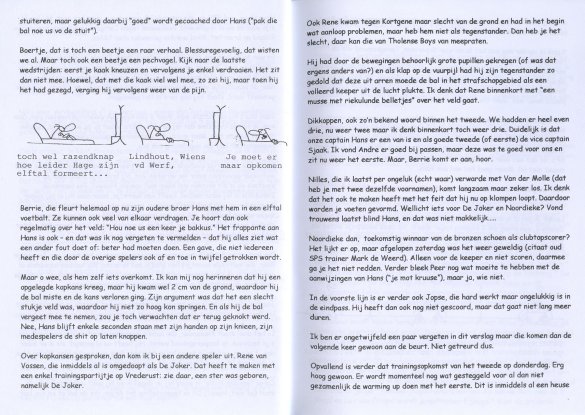 stuiteren, maar gelukkig daarbij "goed" wordt gecoached door Hans ("pak die
bal noe us vo de stuit").
Boertje, dat is toch een beetje een raar verhaal. Blessuregevoelig, dat wisten
we al. Maar toch ook een beetje een pechvogel. Kijk naar de laatste
wedstrijden: eerst je kaak kneuzen en vervolgens je enkel verdraaien. Het zit
dan niet mee. Hoewel, dat met die kaak viel wel mee, zo zei hij, maar toen hij
het had gezegd, verging hij vervolgens weer van de pijn.
toch wel razendknap
hoe leider Hage zijn
elftal formeert...
Lindhout, Wiens
vd Werf,
Je moet er
maar opkomen
Berrie, die fleurt helemaal op nu zijn oudere broer Hans met hem in een elftal
voetbalt. Ze kunnen ook veel van elkaar verdragen. Je hoort dan ook
regelmatig over het veld: "Hou noe us een keer je bakkus." Het frappante aan
Hans is ook – en dat was ik nog vergeten te vermelden – dat hij alles ziet wat
een ander fout doet of: beter had moeten doen. Een gave, die niet iedereen
heeft en die door de overige spelers ook af en toe in twijfel getrokken wordt.
Maar o wee, als hem zelf iets overkomt. Ik kan mij nog herinneren dat hij een
opgelegde kopkans kreeg, maar hij kwam wel 2 cm van de grond, waardoor hij
de bal miste en de kans verloren ging. Zijn argument was dat het een slecht
stukje veld was, waardoor hij niet zo hoog kon springen. En als hij de bal
vergeet mee te nemen, zou je toch verwachten dat er terug geknokt werd.
Nee, Hans blijft enkele seconden staan met zijn handen op zijn knieen, zijn
medespelers de shit op laten knappen.
Over kopkansen gesproken, dan kom ik bij een andere speler uit. Rene van
Vossen, die inmiddels al is omgedoopt als De Joker. Dat heeft te maken met
een enkel trainingspartijtje op Vrederust: zie daar, een ster was geboren,
namelijk De Joker.
Ook Rene kwam tegen Kortgene maar slecht van de grond en had in het begin
wat aanloop problemen, maar heb hem niet als tegenstander. Dan heb je het
slecht, daar kan die van Tholense Boys van meepraten.
Hij had door de bewegingen behoorlijk grote pupillen gekregen (of was dat
ergens anders van?) en als klap op de vuurpijl had hij zijn tegenstander zo
gedold dat deze uit arren moede de bal in het strafschopgebied als een
volleerd keeper uit de lucht plukte. Ik denk dat Rene binnenkort met "een
musse met riekulunde belletjes" over het veld gaat.
Dikkoppen, ook zo'n bekend woord binnen het tweede. We hadden er heel even
drie, nu weer twee maar ik denk binnenkort toch weer drie. Duidelijk is dat
onze captain Hans er een van is en als goede tweede (of eerste) de vice captain
Sjaak. Ik vond Andre er goed bij passen, maar deze was te goed voor ons en
zit nu weer het eerste. Maar, Berrie komt er aan, hoor.
Nilles, die ik laatst per ongeluk (echt waar) verwarde met Van der Molle (dat
heb je met twee dezelfde voornamen), komt langzaam maar zeker los. Ik denk
dat het ook te maken heeft met het feit dat hij nu op klompen loopt. Daardoor
worden je voeten gevormd. Wellicht iets voor De Joker en Noordieke? Vond
trouwens laatst blind Hans, en dat was niet makkelijk....
Noordieke dan, toekomstig winnaar van de bronzen schoen als clubtopscorer?
Het lijkt er op, maar afgelopen zaterdag was het weer geweldig (citaat oud
SPS trainer Mark de Weerd). Alleen voor de keeper en niet scoren, daarmee
ga je het niet redden. Verder bleek Peer nog wat moeite te hebben met de
aanwijzingen van Hans ("je mot kruuse"), maar ja, wie niet.
In de voorste lijn is er verder ook Jopse, die hard werkt maar ongelukkig is in
de eindpass. Hij heeft dan ook nog niet gescoord, maar dat gaat niet lang meer
duren.
Ik ben er ongetwijfeld een paar vergeten in dit verslag maar die komen dan de
volgende keer gewoon aan de beurt. Niet getreurd dus.
Opvallend is verder dat trainingsopkomst van het tweede op donderdag. Erg
hoog gewoon. Er wordt momenteel nog wat gesteggeld voor al dan niet
gezamenlijk de warming up doen met het eerste. Dit is inmiddels al een heuse